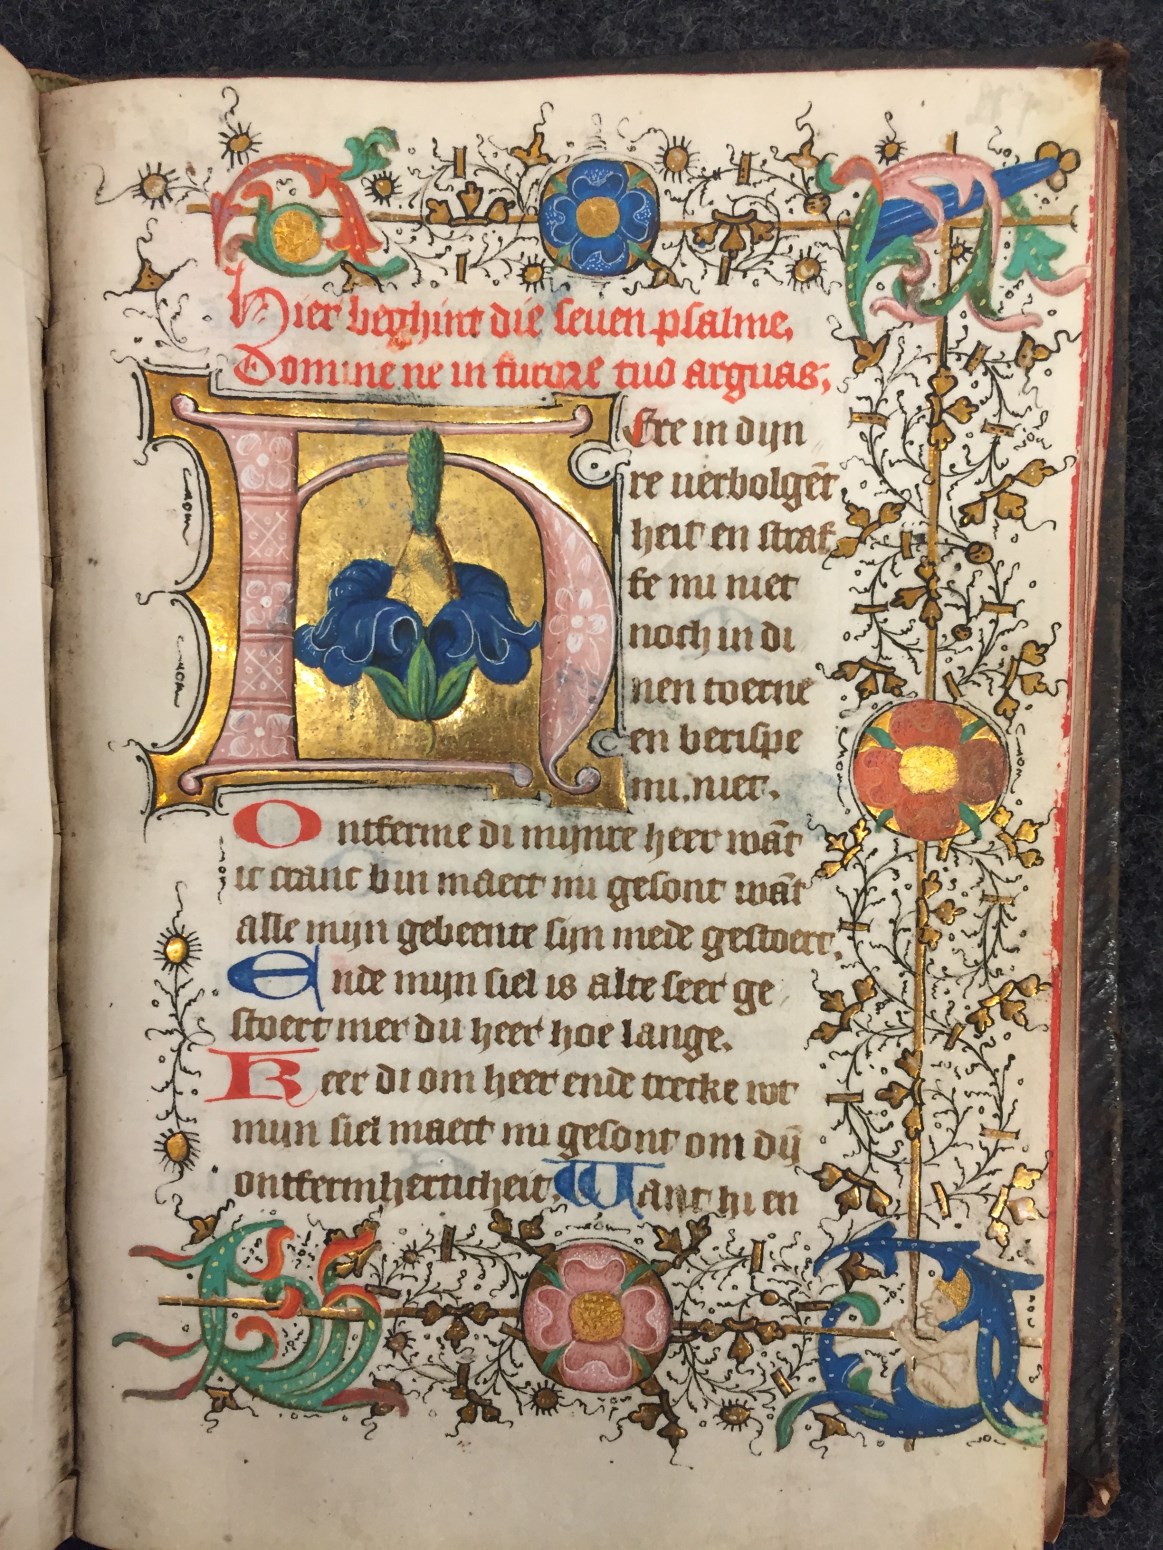 Hier beghint die seuen psalme,
Domine ne in furore tuo arguas;
HEre in dijn
re verbolgē
heit en straf
fe mi niet
noch in di
nen toerne
en berispe
mi niet.
Ontferme di mijnre heer wāt
ic cranc bin maect mi gesont wāt
alle mijn gebeente sijn mede gestoert.
Ende mijn siel is alte seer ge
stoert mer du heer hoe lange.
Keer di om heer ende trecke wt
mijn siel maect mi gesont om dijn
ontfermherticheit. Want hi en